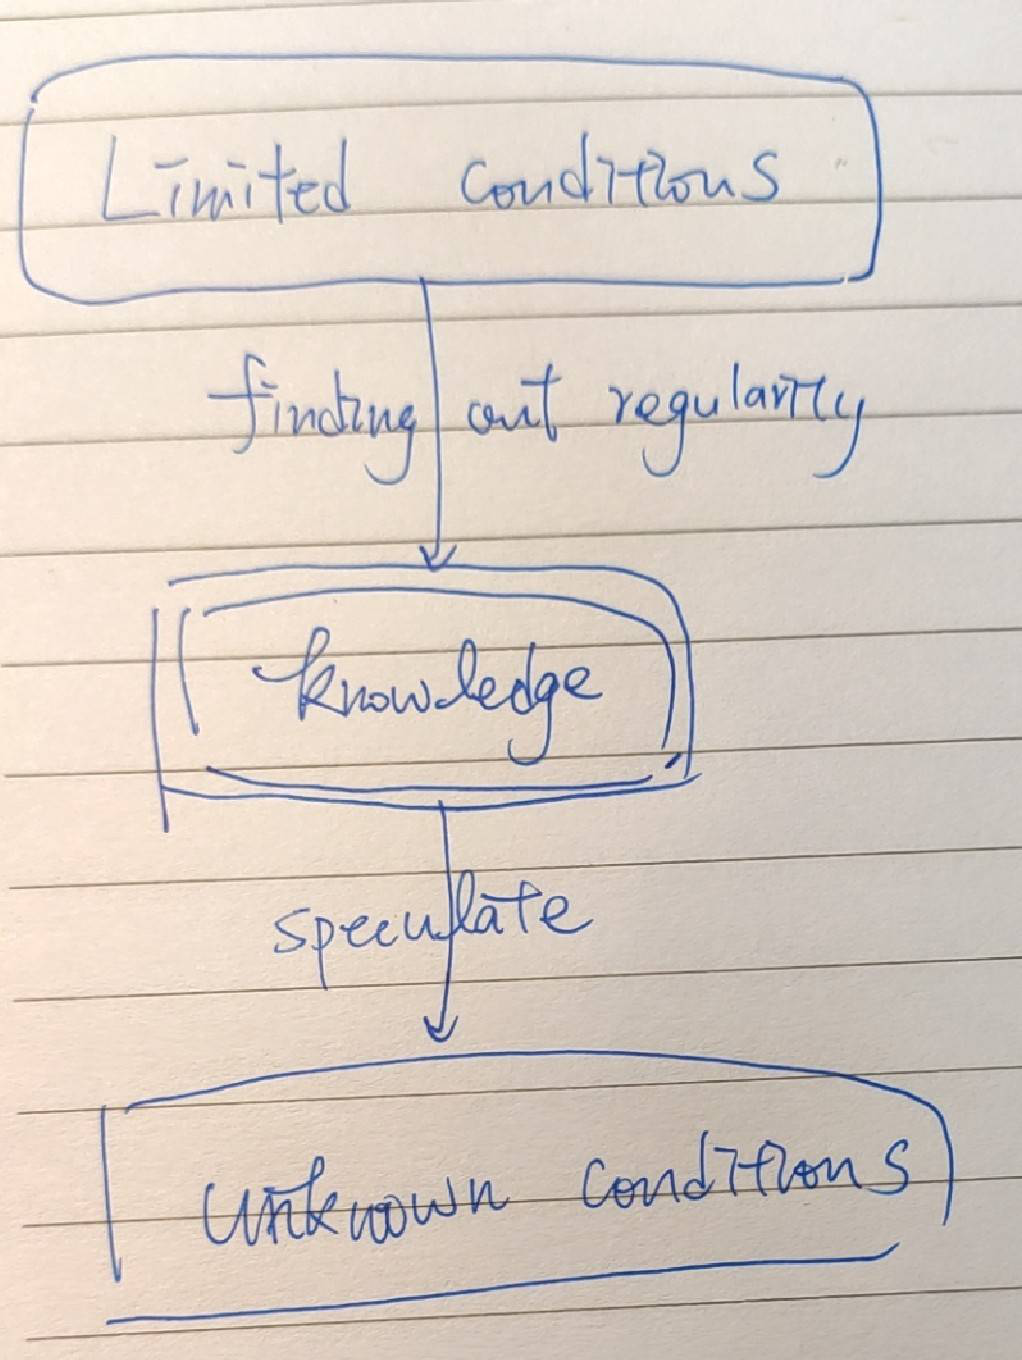 Limited conditions
finding out regularity
knowledge
speculate
unknown conditions